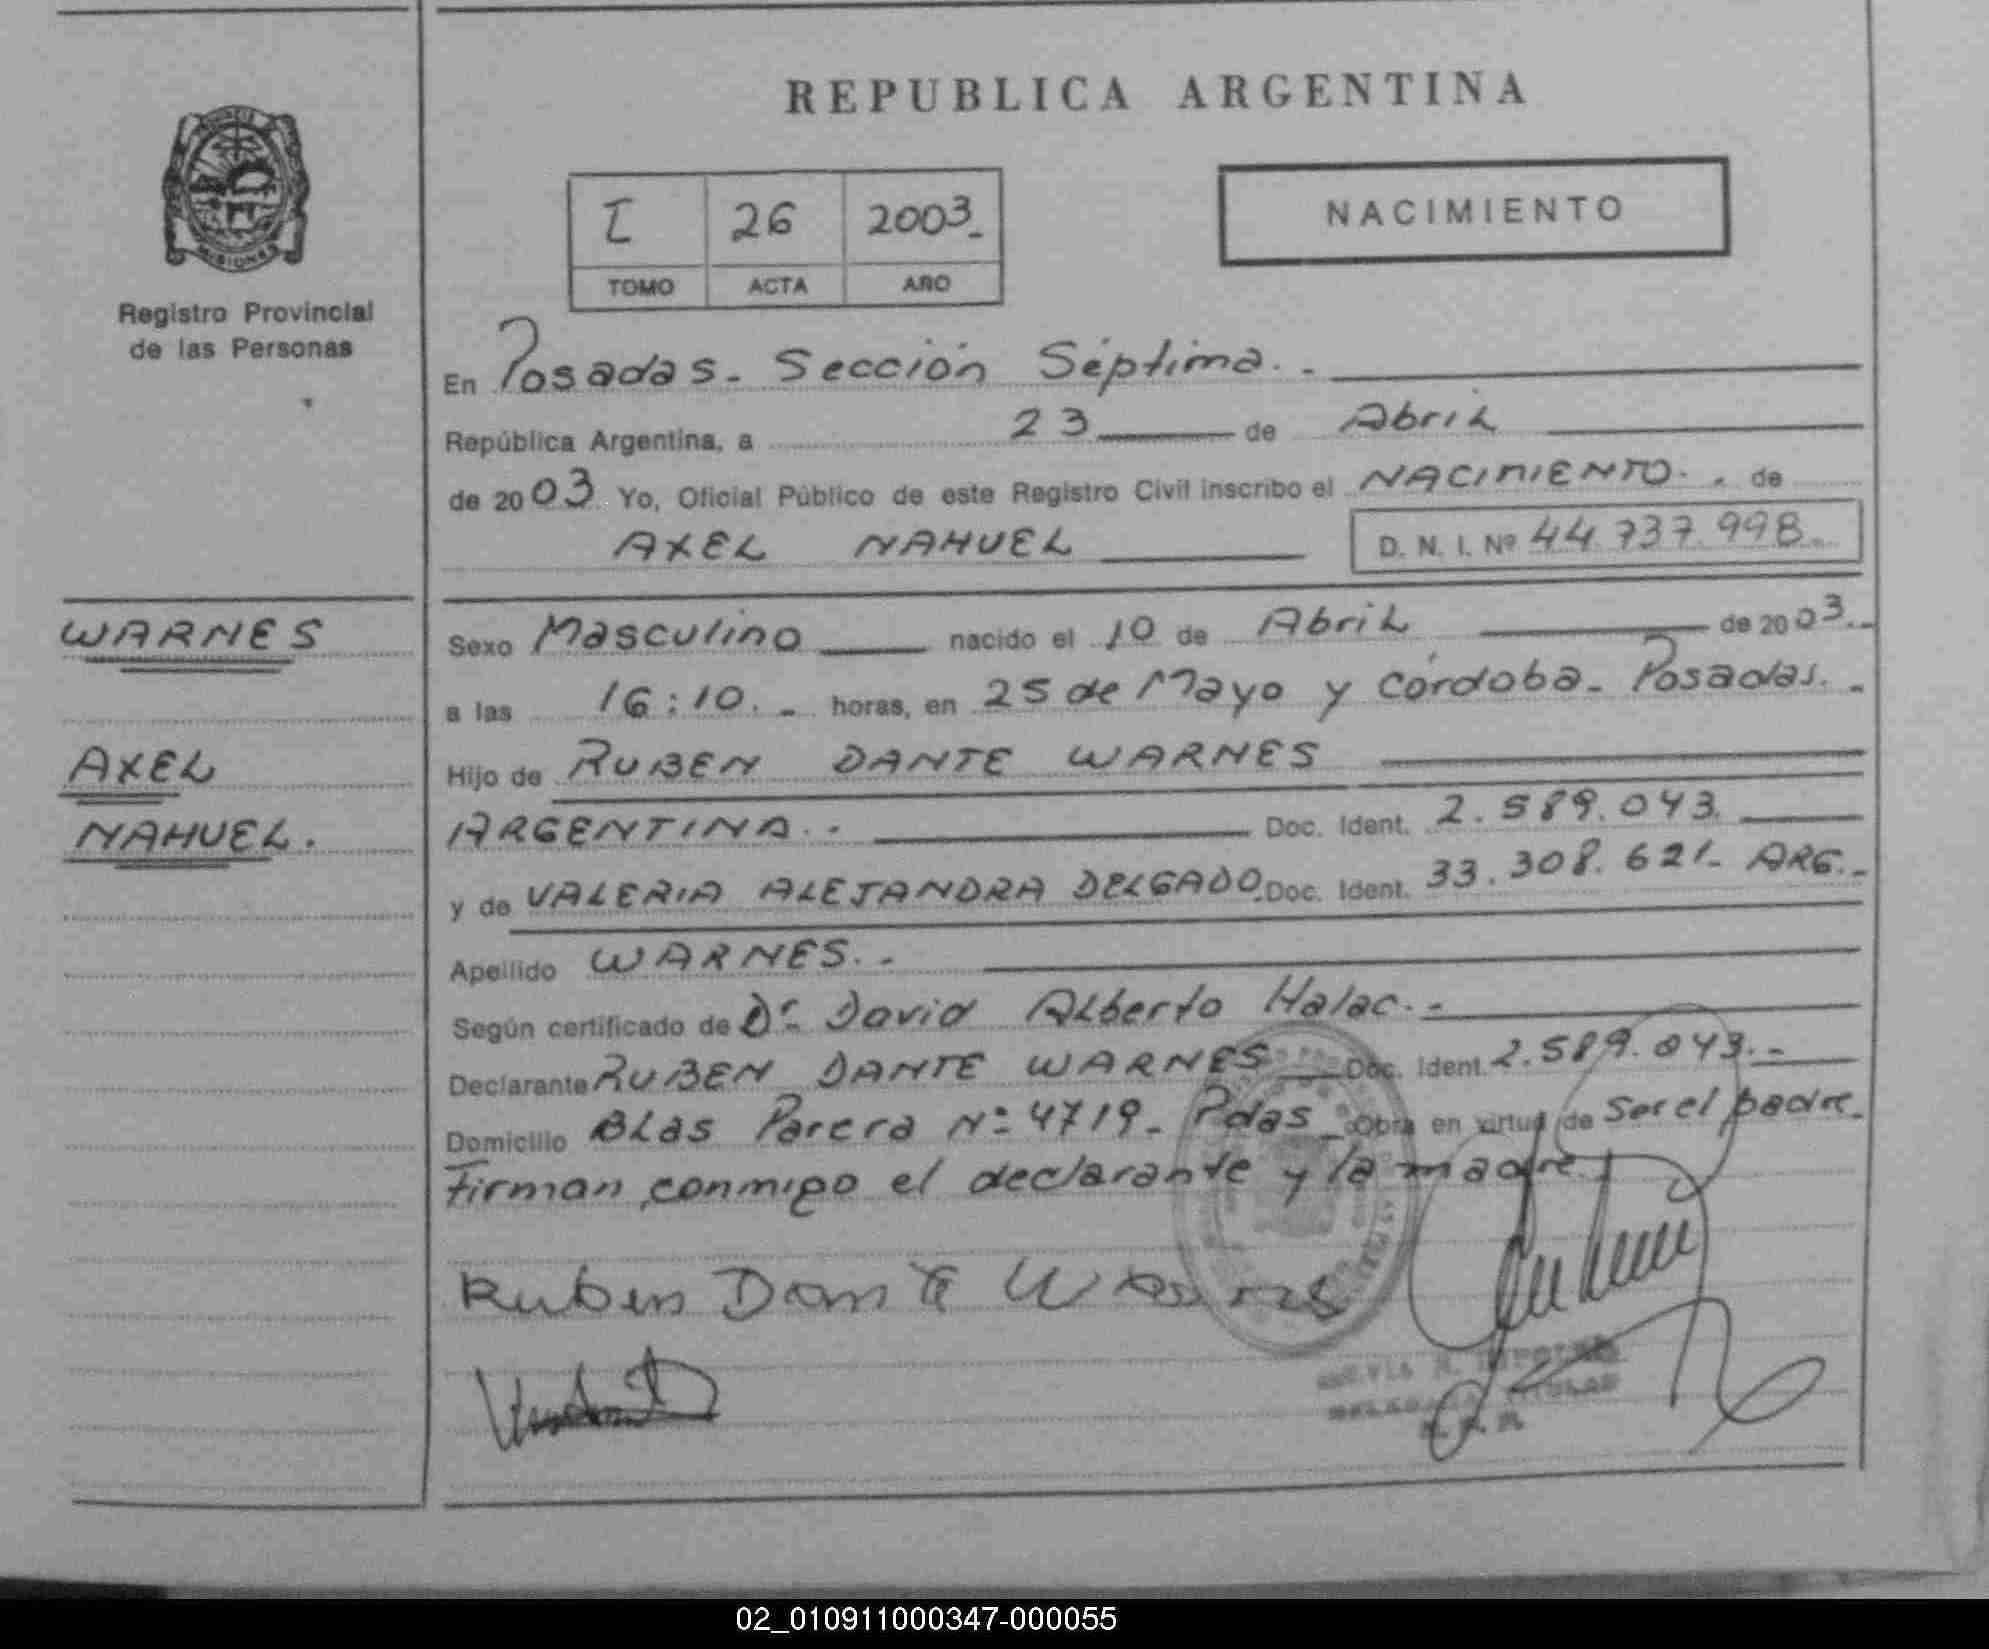 REPUBLICA ARGENTINA
MISIONES
Registro Provincial
de las Personas
I 26 2003.-
TOMO ACTA AÑO
NACIMIENTO
En Posadas. Sección Séptima. -
República Argentina, a 23 de Abril
de 2003 Yo, Oficial Público de este Registro Civil inscribo el NACIMIENTO. . de
AXEL NAHUEL D. N. I. Nº 44.737.998.-
WARNES
AXEL
NAHUEL.
Sexo Masculino nacido el 10 de Abril de 2003.-
a las 16:10. - horas, en 25 de Mayo y Córdoba - Posadas. -
Hijo de RUBEN DANTE WARNES
ARGENTINA. - Doc. Ident. 2.589.043.
y de VALERIA ALEJANDRA DELGADO. Doc. Ident. 33.308.621- ARG.-
Apellido WARNES. -
Según certificado de Dr. David Alberto Halac. -
Declarante RUBEN DANTE WARNES Doc. Ident. 2.589.043. -
Domicilio Blas Parera Nº 4719 - Pdas - Obra en virtud de Ser el padre.
Firman conmigo el declarante y la madre.
Ruben Dante Warnes
02_010911000347-000055